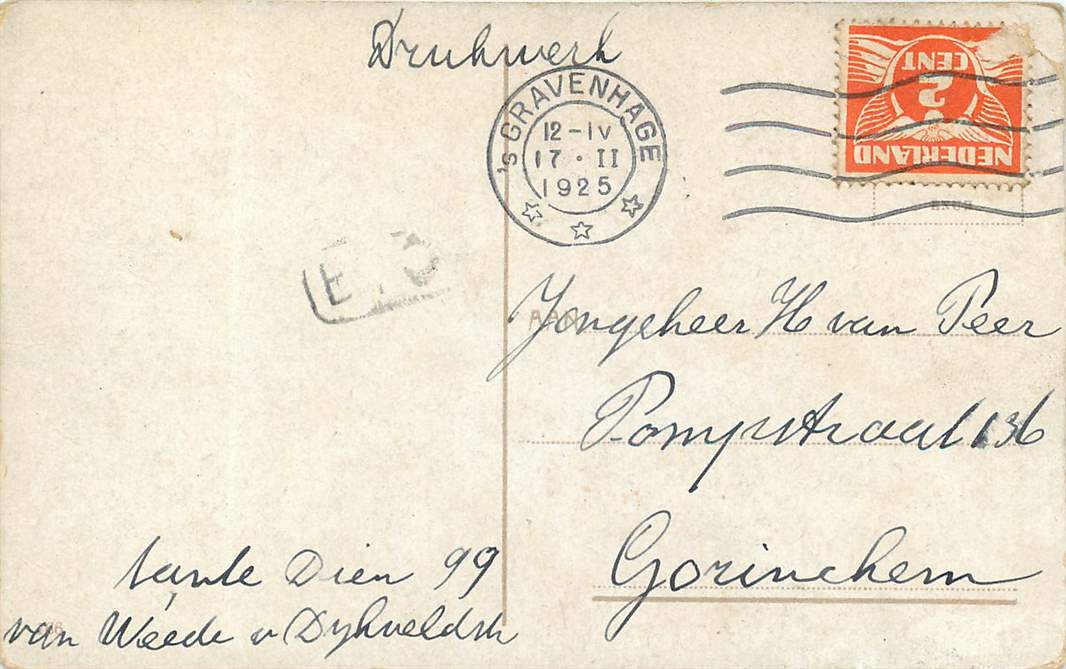 Drukwerk
's GRAVENHAGE
12-IV
17·II
1925
2
CENT
NEDERLAND
AAN
Jongeheer H van Peer
Pompstraat 136
Gorinchem
tante Dien 99
van Weede v Dykveldstr